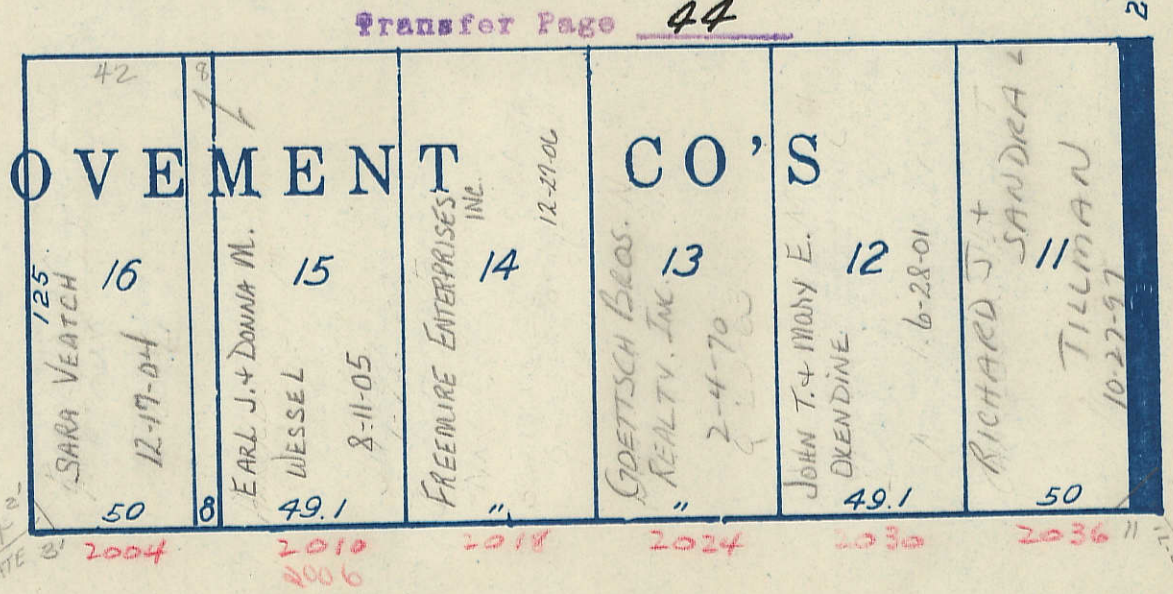 Transfer Page 44
2
42
8
OVEMENT CO'S
125
16
SARA VEATCH
12-17-04
50
8
15
EARL J. & DONNA M.
WESSEL
8-11-05
49.1
14
FREEMIRE ENTERPRISES
INC.
12-29-06
"
13
GOETTSCH BROS.
REALTY. INC.
2-4-70
"
12
JOHN T. & MARY E.
OXENDINE
6-28-01
49.1
11
RICHARD J. +
SANDRA L
TILLMAN
10-27-97
50
2004
2010
2018
2024
2030
2036
11
2006
3'